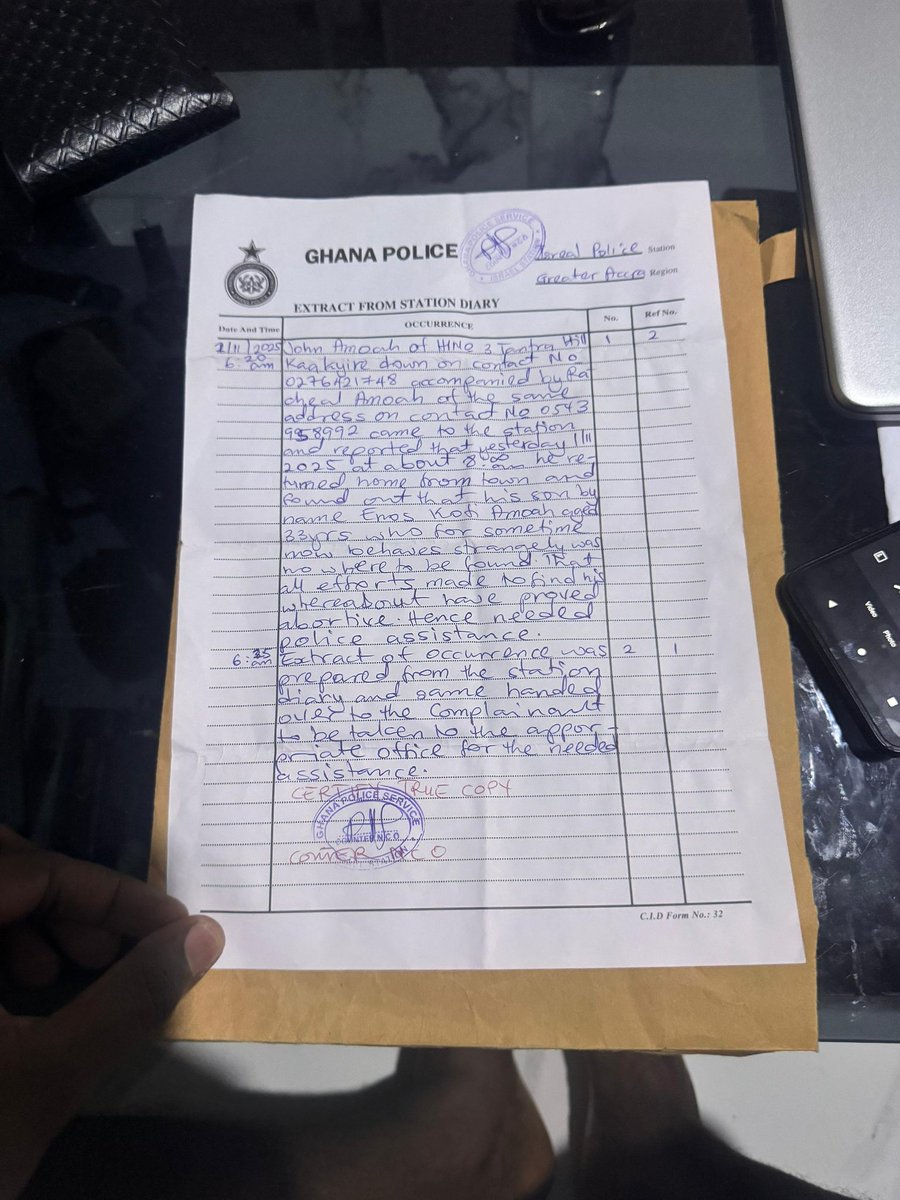 GHANA POLICE
GHANA POLICE SERVICE
COUNTER NCO
ISRAEL STATION
Isreal Police Station
Greater Accra Region
EXTRACT FROM STATION DIARY
Date And Time OCCURRENCE No. Ref No.
2/11/2025 John Amoah of H/No 3 Tantra Hill 1 2
6:20 am Kaakyire down on contact No
0276421748 accompanied by Ra
cheal Amoah of the same
address on contact No 0543
958992 came to the station
and reported that yesterday 1/11
2025 at about 8:00 am he re-
turned home from town and
found out that his son by
name Enos Kofi Amoah aged
33yrs who for sometime
now behaves strangely was
no where to be found. That
all efforts made to find his
whereabout have proved
abortive. Hence needed
police assistance.
6:35 am Extract of occurrence was 2 1
prepared from the station
diary and same handed
over to the Complainant
to be taken to the appor-
priate office for the needed
assistance.
CERTIFY TRUE COPY
GHANA POLICE SERVICE
COUNTER N.C.O
C.I.D Form No.: 32
Video
Photo